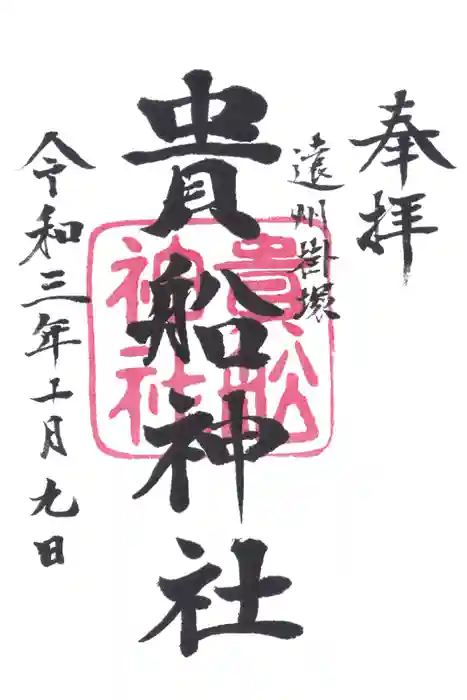 奉拝
遠州掛塚
貴船神社
令和三年十一月九日
貴舩
神社